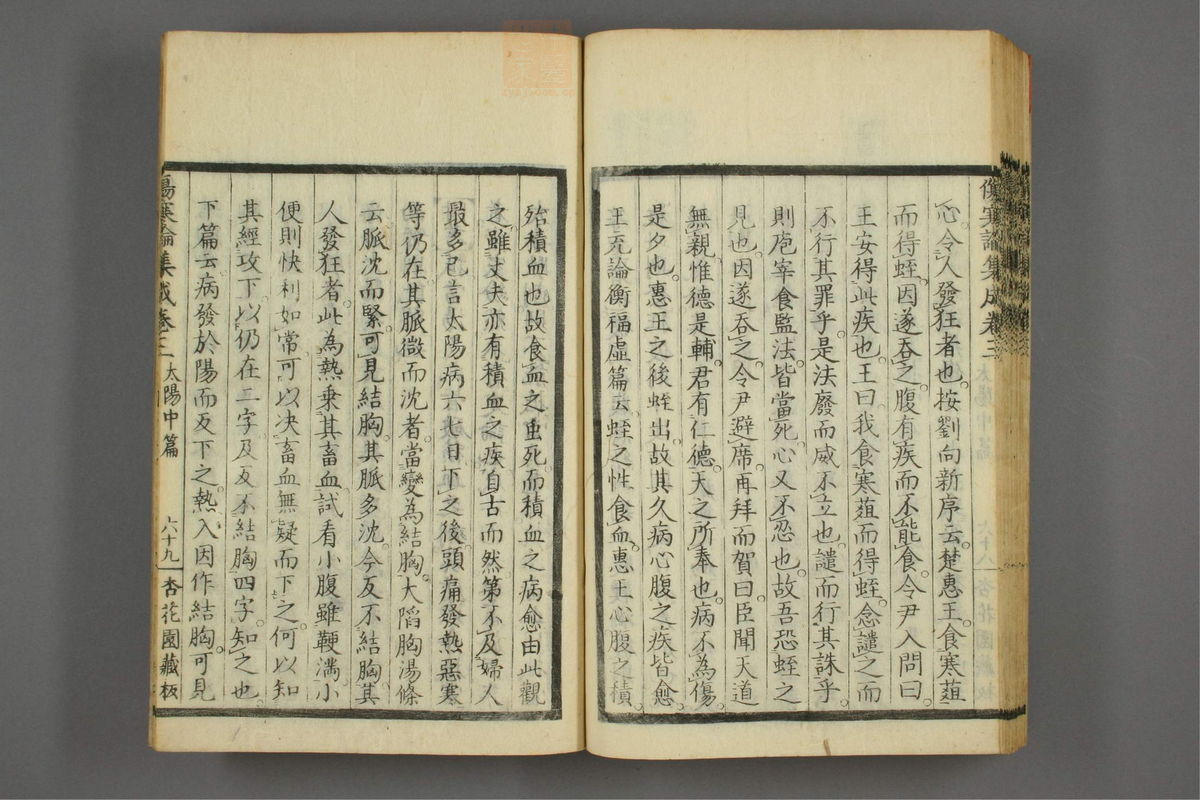 傷寒論集成卷三
心令人發狂者也按劉向新序云楚惠王食寒菹
而得蛭因遂吞之腹有疾而不能食令尹入問曰
王安得此疾也王曰我食寒菹而得蛭念譴之而
不行其罪乎是法廢而威不立也譴而行其誅乎
則庖宰食監法皆當死心又不忍也故吾恐蛭之
見也因遂吞之令尹避席再拜而賀曰臣聞天道
無親惟德是輔君有仁德天之所奉也病不為傷
是夕也惠王之後蛭出故其久病心腹之疾皆愈
王充論衡福虛篇云蛭之性食血惠王心腹之積
殆積血也故食血之虫死而積血之病愈由此觀
之雖丈夫亦有積血之疾自古而然第不及婦人
最多已言太陽病六七日下之後頭痛發熱惡寒
等仍在其脈微而沈者當變為結胸大陷胸湯條
云脈沈而緊可見結胸其脈多沈今反不結胸其
人發狂者此為熱乘其畜血試看小腹雖鞕滿小
便則快利如常可以決畜血無疑而下之何以知
其經攻下以仍在二字及反不結胸四字知之也
下篇云病發於陽而反下之熱入因作結胸可見
傷寒論集成卷三 太陽中篇 六十九 杏花園藏板